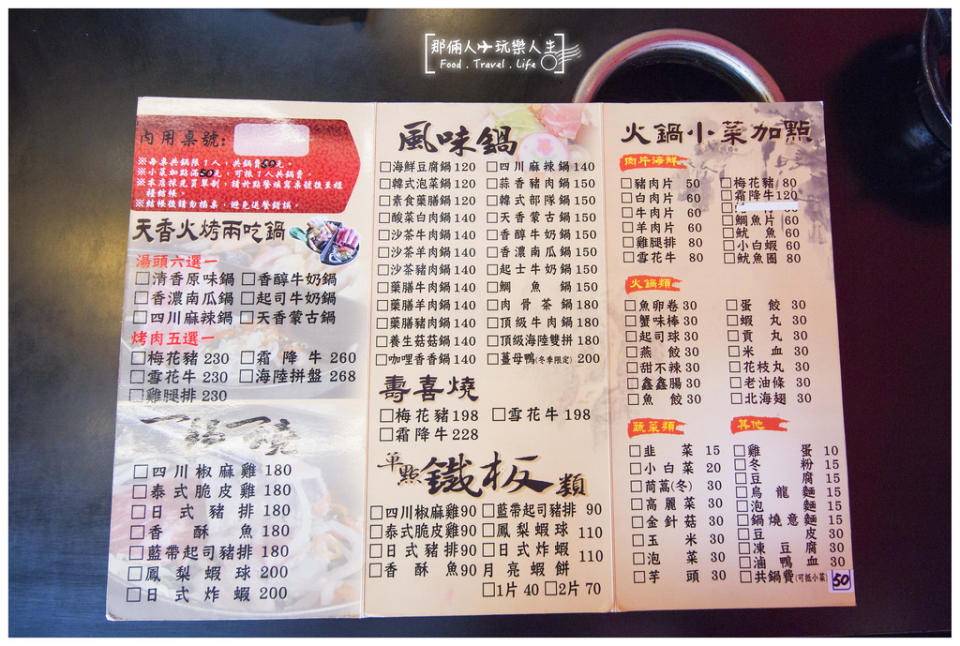 那倆人✈玩樂人生
Food . Travel . Life
內用桌號:
※每桌共鍋限1人,共鍋費50元。
※小菜加點滿50元,可抵1人共鍋費。
※本店採先買單制,請於點餐填寫桌號後至櫃
檯結帳。
※結帳後請勿換桌,避免送餐錯誤。
天香火烤兩吃鍋
湯頭六選一
□清香原味鍋 □香醇牛奶鍋
□香濃南瓜鍋 □起司牛奶鍋
□四川麻辣鍋 □天香蒙古鍋
烤肉五選一
□梅花豬 230 □霜降牛 260
□雪花牛 230 □海陸拼盤 268
□雞腿排 230
□四川椒麻雞 180
□泰式脆皮雞 180
□日式豬排 180
□香酥魚 180
□藍帶起司豬排 180
□鳳梨蝦球 200
□日式炸蝦 200
風味鍋
□海鮮豆腐鍋 120
□韓式泡菜鍋 120
□素食藥膳鍋 120
□酸菜白肉鍋 140
□沙茶牛肉鍋 140
□沙茶羊肉鍋 140
□沙茶豬肉鍋 140
□藥膳牛肉鍋 140
□藥膳羊肉鍋 140
□藥膳豬肉鍋 140
□養生菇菇鍋 140
□咖哩香香鍋 140
□四川麻辣鍋 140
□蒜香豬肉鍋 150
□韓式部隊鍋 150
□天香蒙古鍋 150
□香醇牛奶鍋 150
□香濃南瓜鍋 150
□起士牛奶鍋 150
□鯛魚鍋 150
□肉骨茶鍋 180
□頂級牛肉鍋 180
□頂級海陸雙拼 180
□薑母鴨(冬季限定) 200
壽喜燒
□梅花豬 198 □雪花牛 198
□霜降牛 228
單點鐵板類
□四川椒麻雞 90
□泰式脆皮雞 90
□日式豬排 90
□香酥魚 90
□藍帶起司豬排 90
□鳳梨蝦球 110
□日式炸蝦 110
□月亮蝦餅
□1片 40 □2片 70
火鍋小菜加點
肉片海鮮
□豬肉片 50
□白肉片 60
□牛肉片 60
□羊肉片 60
□雞腿排 80
□雪花牛 80
□梅花豬 80
□霜降牛 120
□鯛魚片 60
□魷魚 60
□小白蝦 60
□魷魚圈 80
火鍋類
□魚卵卷 30
□蟹味棒 30
□起司球 30
□燕餃 30
□甜不辣 30
□鑫鑫腸 30
□魚餃 30
□蛋餃 30
□蝦丸 30
□貢丸 30
□米血 30
□花枝丸 30
□老油條 30
□北海翅 30
蔬菜類
□韭菜 15
□小白菜 20
□茼萵(冬) 30
□高麗菜 30
□金針菇 30
□玉米 30
□泡菜 30
□芋頭 30
其他
□雞蛋 10
□冬粉 15
□豆腐 15
□烏龍麵 15
□泡麵 15
□鍋燒意麵 15
□豆皮 30
□凍豆腐 30
□滷鴨血 30
□共鍋費(可抵小菜) 50